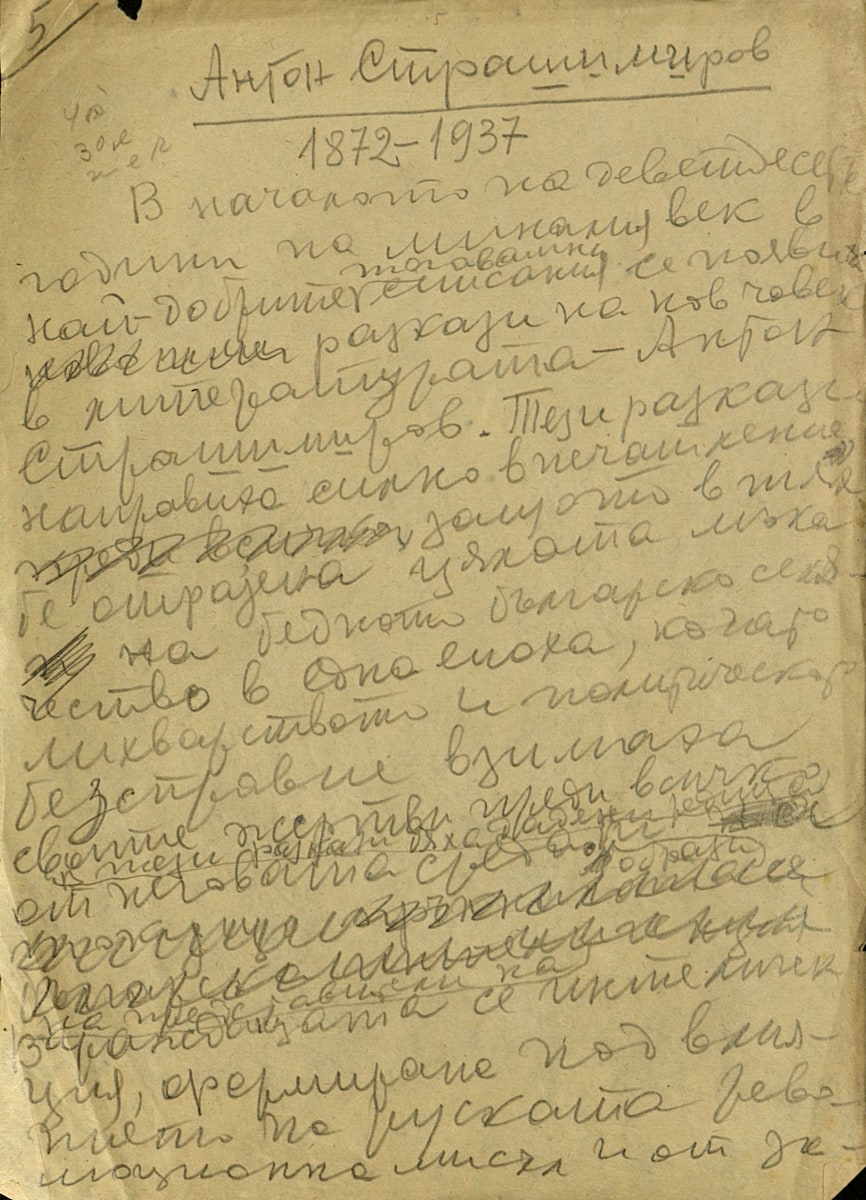 5
Антон Страшимиров
1872–1937
В началото на деветдесетте
години на миналия век в
най-добрите тогавашни списания се появиха
разкази на нов човек
в литературата – Антон
Страшимиров. Тези разкази
направиха силно впечатление
преди всичко, защото в тях
бе отразена цялата мъка
на бедното българско селя-
чество в една епоха, когато
лихварството и политическото
безправие взимаха
своите жертви преди всичко
от неговата среда. И
в тези разкази бяха дадени редица
образи
на представители на
зараждащата се интелиген-
ция, формирана под влия-
нието на руската рево-
люционна мисъл и от ък-